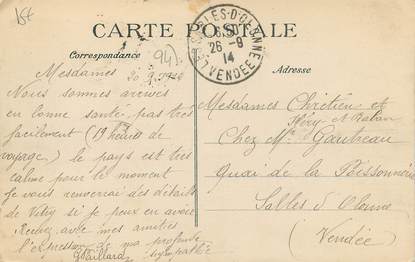 CARTE POSTALE
Correspondance
Adresse
LES SABLES-D'OLONNE
26-9
14
VENDÉE
Mesdames
Nous sommes arrivés
en bonne santé, pas très
facilement (19 heures de
voyage) le pays est très
calme pour le moment
je vous renverrai des détails
de Vitry si je peux en avoir
Recevez avec mes amitiés
l'expression de ma profonde
sympathie
GVaillard
Mesdames Chrétien et
Chez Mr Gautreau
Quai de la Poissonnerie
Salles d Olonne
(Vendée)